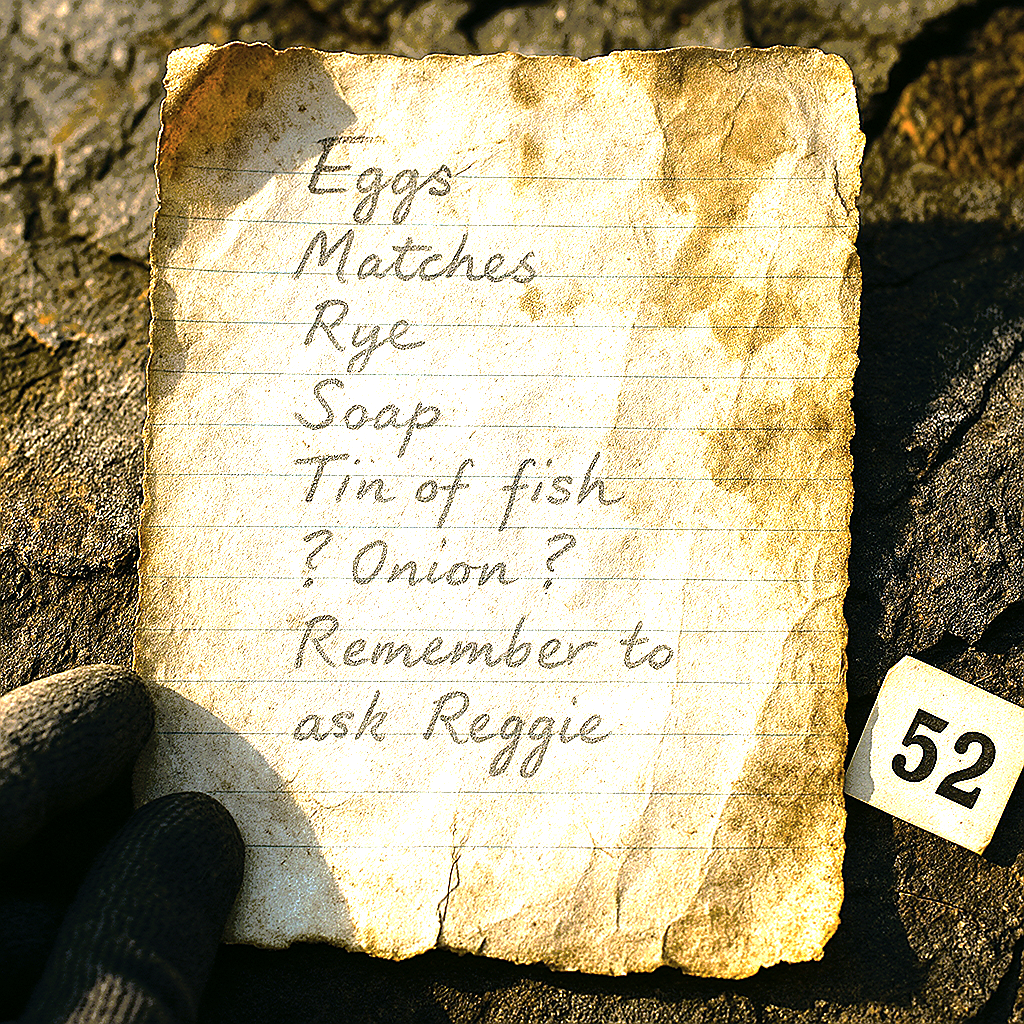 Eggs
Matches
Rye
Soap
Tin of fish
? Onion ?
Remember to
ask Reggie
52